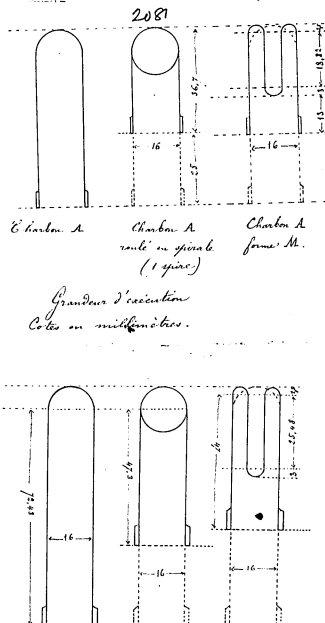 2081
36,7
25
16
16
13,22
3
13
Charbon A.
Charbon A
roulé en spirale
(1 spire)
Charbon A
forme M.
Grandeur d'exécution
Cotes en millimètres.
72,43
47,3
47
25,48
3
16
16
16